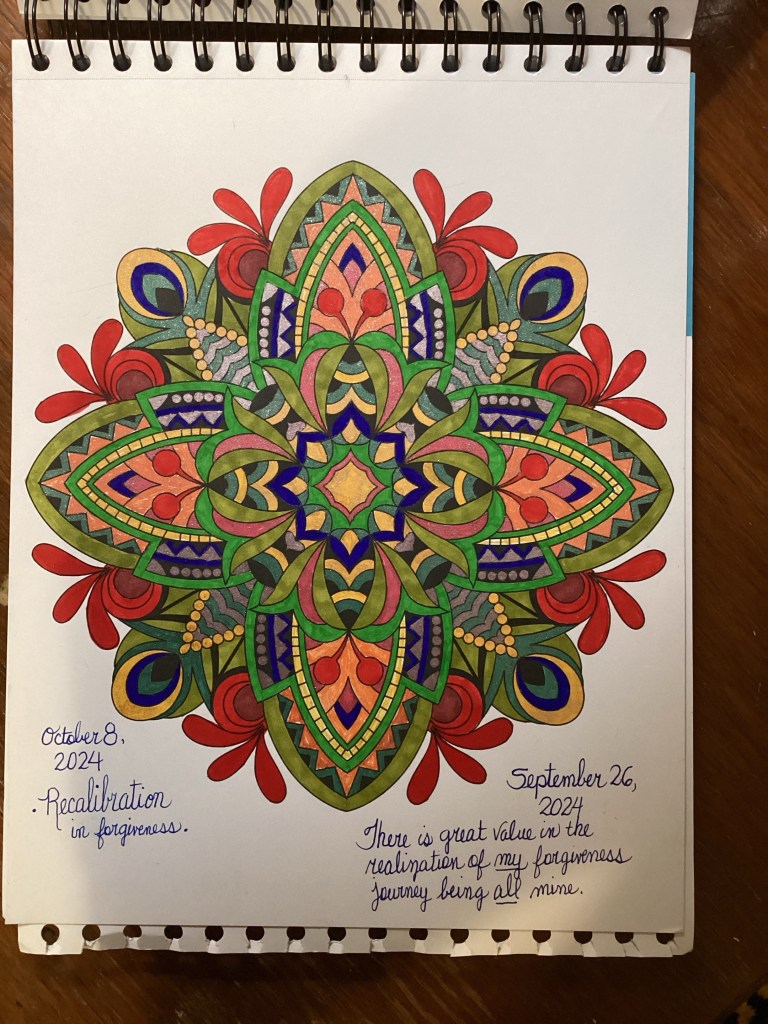 October 8,
2024
. Recalibration
in forgiveness.
September 26,
2024
There is great value in the
realization of my forgiveness
journey being all mine.